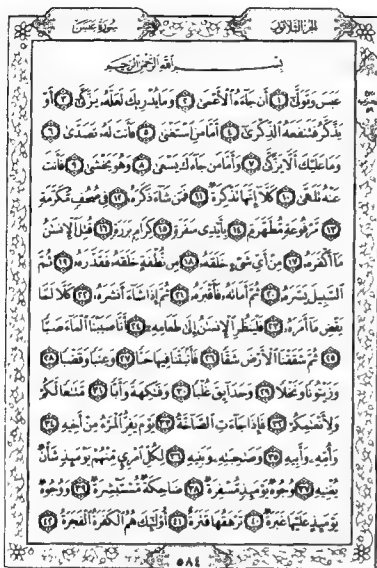 الجزء الثلاثون
سورة عبس
بسم الله الرحمن الرحيم
عَبَسَ وَتَوَلَّىٰ ١ أَن جَاءَهُ الْأَعْمَىٰ ٢ وَمَا يُدْرِيكَ لَعَلَّهُ يَزَّكَّىٰ ٣ أَوْ
يَذَّكَّرُ فَتَنفَعَهُ الذِّكْرَىٰ ٤ أَمَّا مَنِ اسْتَغْنَىٰ ٥ فَأَنتَ لَهُ تَصَدَّىٰ ٦
وَمَا عَلَيْكَ أَلَّا يَزَّكَّىٰ ٧ وَأَمَّا مَن جَاءَكَ يَسْعَىٰ ٨ وَهُوَ يَخْشَىٰ ٩ فَأَنتَ
عَنْهُ تَلَهَّىٰ ١٠ كَلَّا إِنَّهَا تَذْكِرَةٌ ١١ فَمَن شَاءَ ذَكَرَهُ ١٢ فِي صُحُفٍ مُّكَرَّمَةٍ
١٣ مَّرْفُوعَةٍ مُّطَهَّرَةٍ ١٤ بِأَيْدِي سَفَرَةٍ ١٥ كِرَامٍ بَرَرَةٍ ١٦ قُتِلَ الْإِنسَٰنُ
مَا أَكْفَرَهُ ١٧ مِنْ أَيِّ شَيْءٍ خَلَقَهُ ١٨ مِن نُّطْفَةٍ خَلَقَهُ فَقَدَّرَهُ ١٩ ثُمَّ
السَّبِيلَ يَسَّرَهُ ٢٠ ثُمَّ أَمَاتَهُ فَأَقْبَرَهُ ٢١ ثُمَّ إِذَا شَاءَ أَنشَرَهُ ٢٢ كَلَّا لَمَّا
يَقْضِ مَا أَمَرَهُ ٢٣ فَلْيَنظُرِ الْإِنسَٰنُ إِلَىٰ طَعَامِهِ ٢٤ أَنَّا صَبَبْنَا الْمَاءَ صَبًّا
٢٥ ثُمَّ شَقَقْنَا الْأَرْضَ شَقًّا ٢٦ فَأَنبَتْنَا فِيهَا حَبًّا ٢٧ وَعِنَبًا وَقَضْبًا ٢٨
وَزَيْتُونًا وَنَخْلًا ٢٩ وَحَدَائِقَ غُلْبًا ٣٠ وَفَٰكِهَةً وَأَبًّا ٣١ مَّتَٰعًا لَّكُمْ
وَلِأَنْعَٰمِكُمْ ٣٢ فَإِذَا جَاءَتِ الصَّاخَّةُ ٣٣ يَوْمَ يَفِرُّ الْمَرْءُ مِنْ أَخِيهِ ٣٤
وَأُمِّهِ وَأَبِيهِ ٣٥ وَصَٰحِبَتِهِ وَبَنِيهِ ٣٦ لِكُلِّ امْرِئٍ مِّنْهُمْ يَوْمَئِذٍ شَأْنٌ
يُغْنِيهِ ٣٧ وُجُوهٌ يَوْمَئِذٍ مُّسْفِرَةٌ ٣٨ ضَاحِكَةٌ مُّسْتَبْشِرَةٌ ٣٩ وَوُجُوهٌ
يَوْمَئِذٍ عَلَيْهَا غَبَرَةٌ ٤٠ تَرْهَقُهَا قَتَرَةٌ ٤١ أُولَٰئِكَ هُمُ الْكَفَرَةُ الْفَجَرَةُ ٤٢
٥٨٤